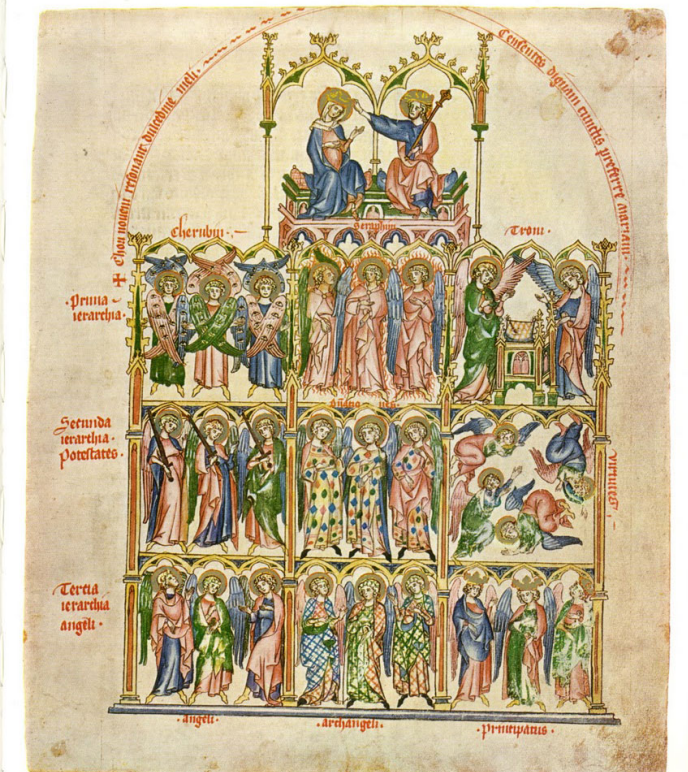 ✝ Chori novem resonant dulcedine meli.
Censentes dignam cunctis preferre mariam.
Cherubin.
Seraphin
Troni.
Prima
ierarchia.
Secunda
ierarchia.
Potestates.
virtutes.
Tercia
ierarchia
angeli.
angeli.
archangeli.
Principatus.